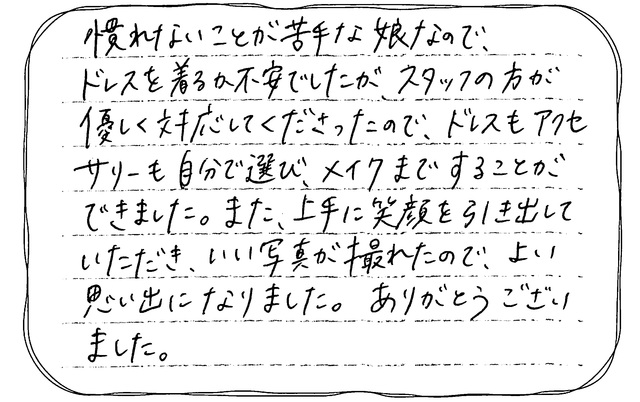 慣れないことが苦手な娘なので、
ドレスを着るか不安でしたが、スタッフの方が
優しく対応してくださったので、ドレスもアクセ
サリーも自分で選び、メイクまですることが
できました。また、上手に笑顔を引き出して
いただき、いい写真が撮れたので、よい
思い出になりました。ありがとうござい
ました。